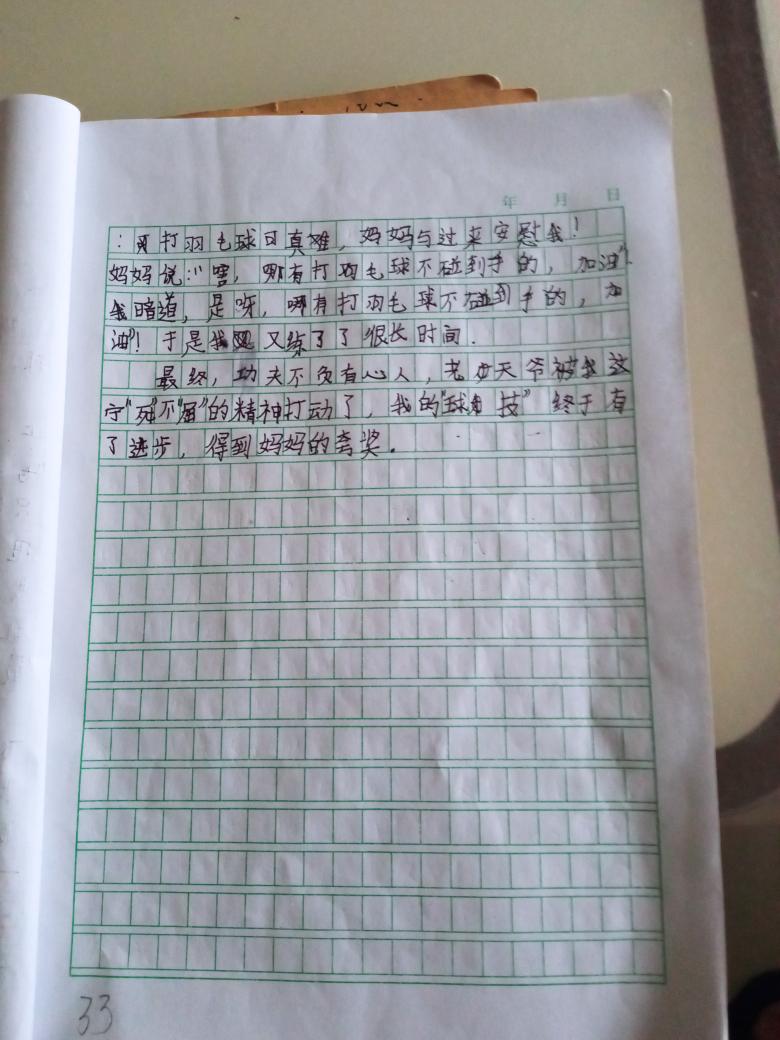 年 月 日
:打羽毛球日真难，妈妈与过来安慰我！
妈妈说:“害，哪有打羽毛球不碰到手的，加油”!
我暗道，是呀，哪有打羽毛球不碰到手的，加
油”！于是我又练了了很长时间.
最终，功夫不负有心人，老天爷被我这
宁“死”不“屈”的精神打动了，我的“球技”终于有
了进步，得到妈妈的夸奖.
33